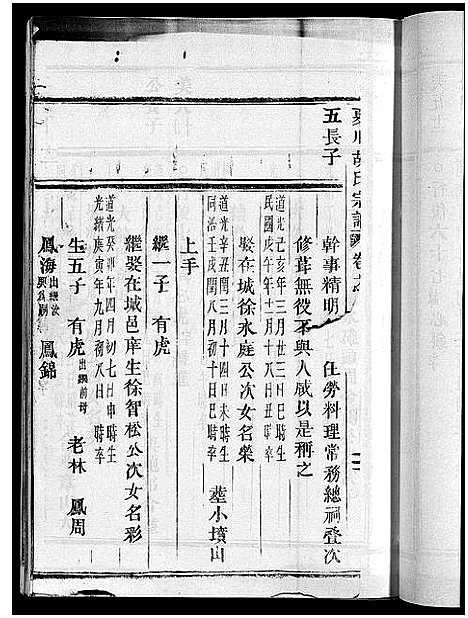 胡氏宗譜 卷之
五長子
幹事精明 任勞料理常務總祠登次
修葺無役不與人咸以是稱之
道光己亥年三月廿三日巳時生
民國戊午年十二月十八日戌時卒
娶在城徐氷庭公次女名榮
道光辛丑閏三月十四日未時生
同治壬戌閏八月初十日巳時卒
葬小墳山
上手
繼一子 有虎
繼娶在城邑庠生徐智松公次女名彩
道光癸卯年四月初七日申時生
光緒庚寅年九月初八日時卒
生五子 有虎 出繼前母 老林 鳳周
鳳海 出繼 鳳錦